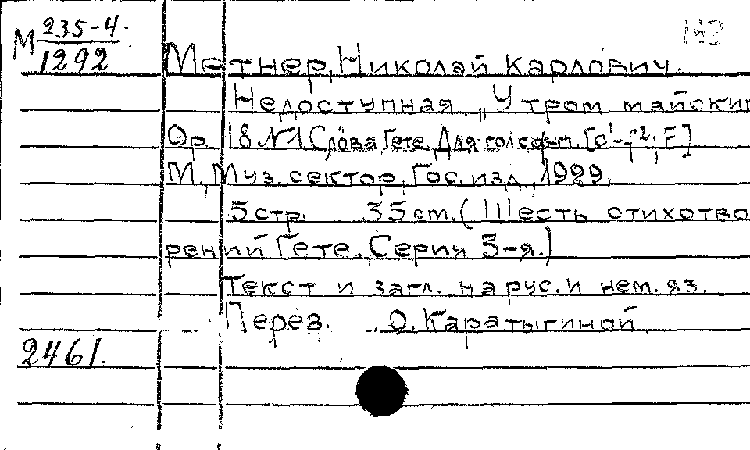 М 235-4
1292
Метнер, Николай Карлович.
Недоступная „Утром майским
Ор. 18 №1 Слова Гете. Для гол с ф-п.
М., Муз. сектор. Гос. изд., 1929.
5 стр. 35 cm. (Шесть стихотво
рений Гете. Серия 3-я.)
Текст и загл. на рус. и нем. яз.
Перев. О. Каратыгиной
2461.